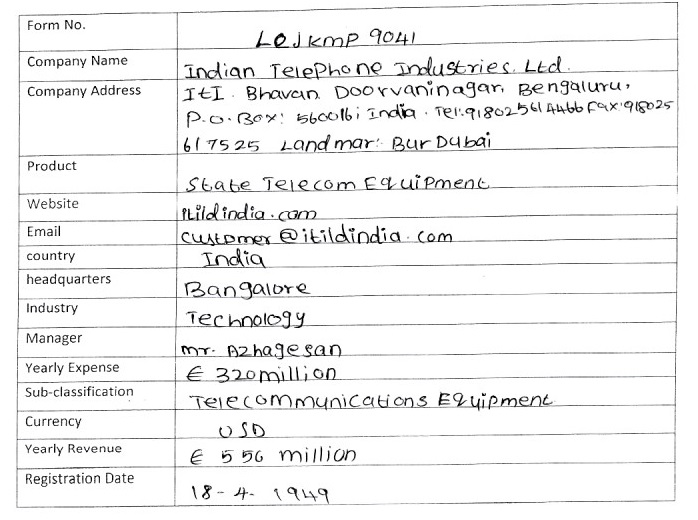 Form No. LOJKMP 9041
Company Name Indian Telephone Industries. Ltd.
Company Address ItI. Bhavan Doorvaninagar, Bengaluru,
P.O.Box: 560016; India. Tel:918025614466 Fax:918025
617525 Landmar: Bur Dubai
Product State Telecom Equipment
Website itildindia.com
Email customer@itildindia.com
country India
headquarters Bangalore
Industry Technology
Manager mr. Azhagesan
Yearly Expense € 320million
Sub-classification Telecommunications Equipment
Currency USD
Yearly Revenue € 556 million
Registration Date 18-4-1949